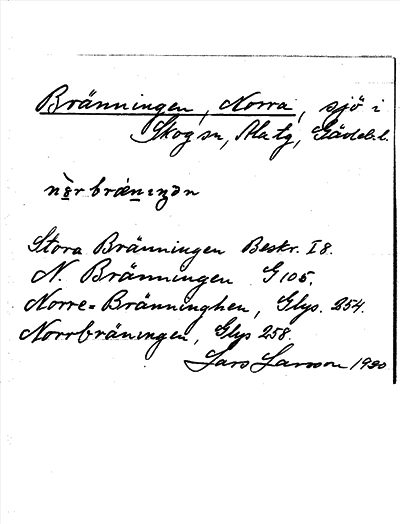 Bränningen, Norra, sjö i
Skog sn, Ala tg, Gävleb.l.
nǫrbrǽnıŋən
Stora Bränningen Beskr. I 8.
N. Bränningen G 105.
Norre=Bränninghen, Glys. 254.
Norrbräningen, Glys 258.
Lars Larsson 1920